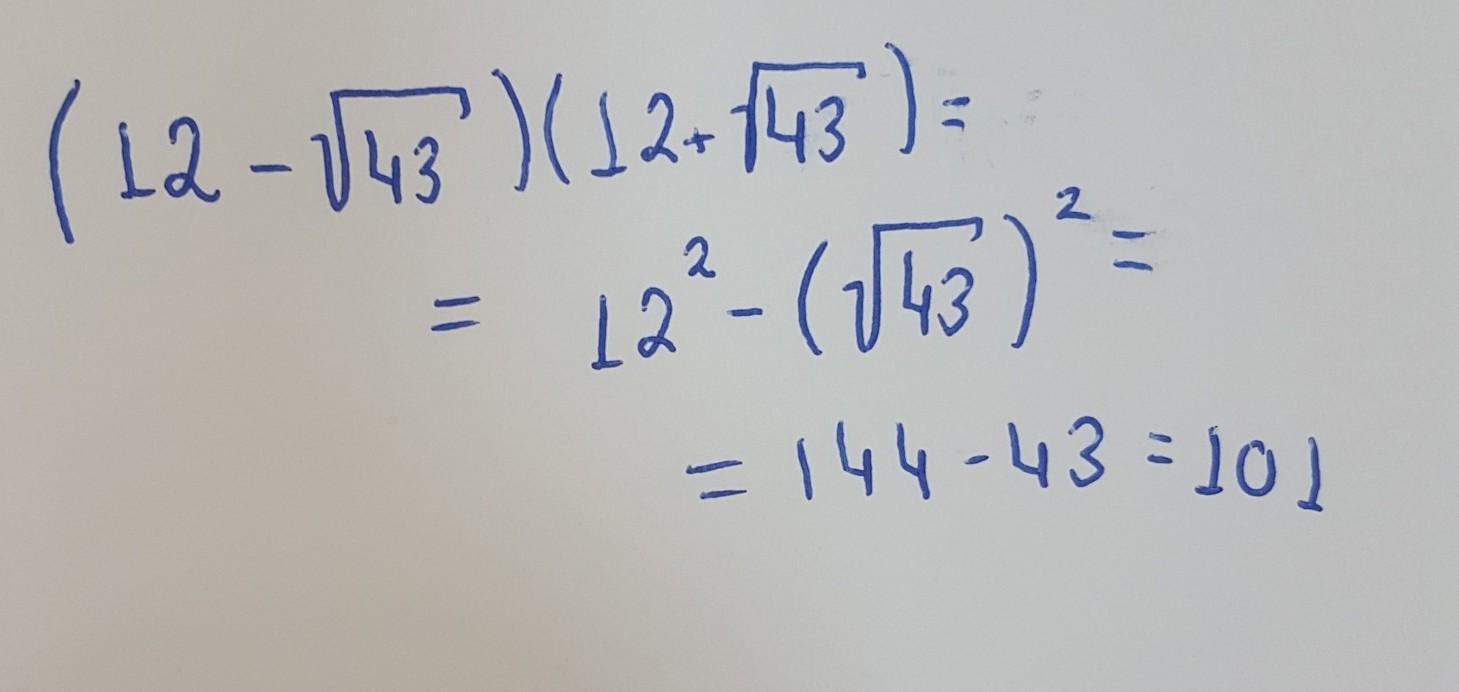 (12 - √43)(12 + √43) =
= 12² - (√43)² =
= 144 - 43 = 101